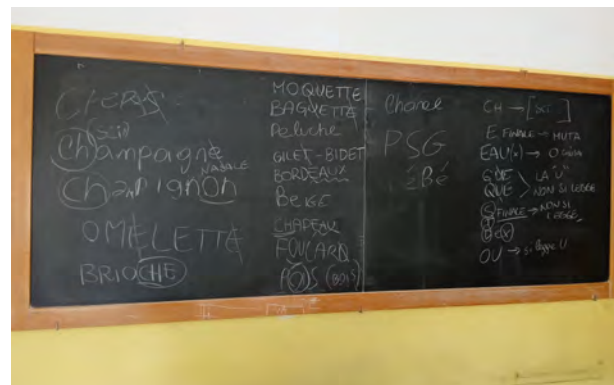 (sci)
Champagne
NASALE
Champignon
OMELETTE
BRIOCHE
MOQUETTE
BAGUETTE
Peluche
GILET - BIDET
BORDEAUX
BEIGE
CHAPEAU
FOULARD
(BOIS)
Chanel
PSG
BéBé
CH → [sci]
E FINALE → MUTA
EAU(x) → O
GUE
QUE
LA "U"
NON SI LEGGE
FINALE → NON SI
LEGGE
OU → si legge U